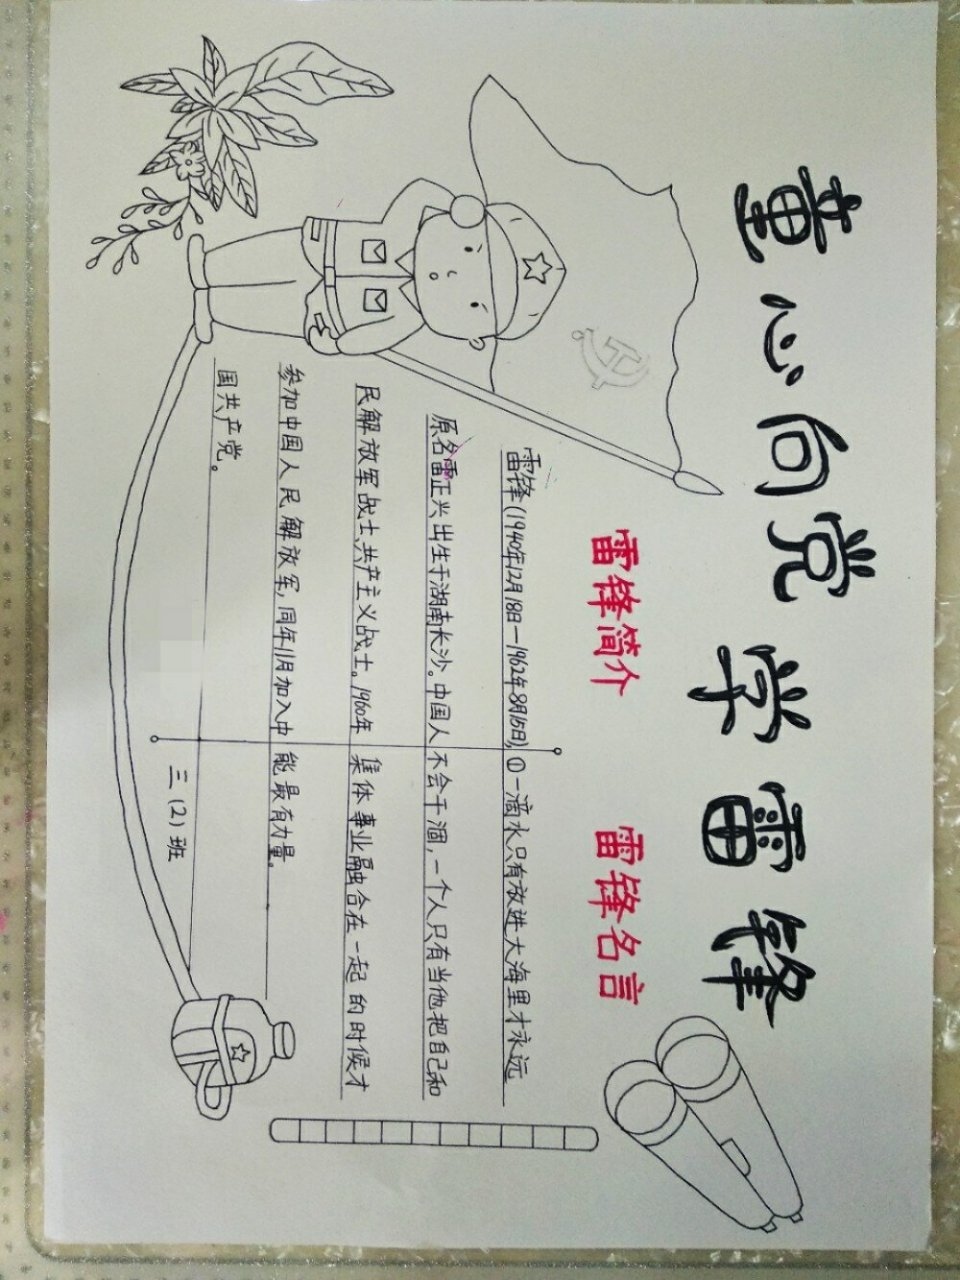 童心向党 学雷锋
雷锋简介
雷锋(1940年12月18日—1962年8月15日),
原名雷正兴出生于湖南长沙。中国人
民解放军战士,共产主义战士。1960年
参加中国人民解放军,同年11月加入中
国共产党。
雷锋名言
①一滴水只有放进大海里才永远
不会干涸,一个人只有当他把自己和
集体事业融合在一起的时候才
能最有力量。
三(2)班